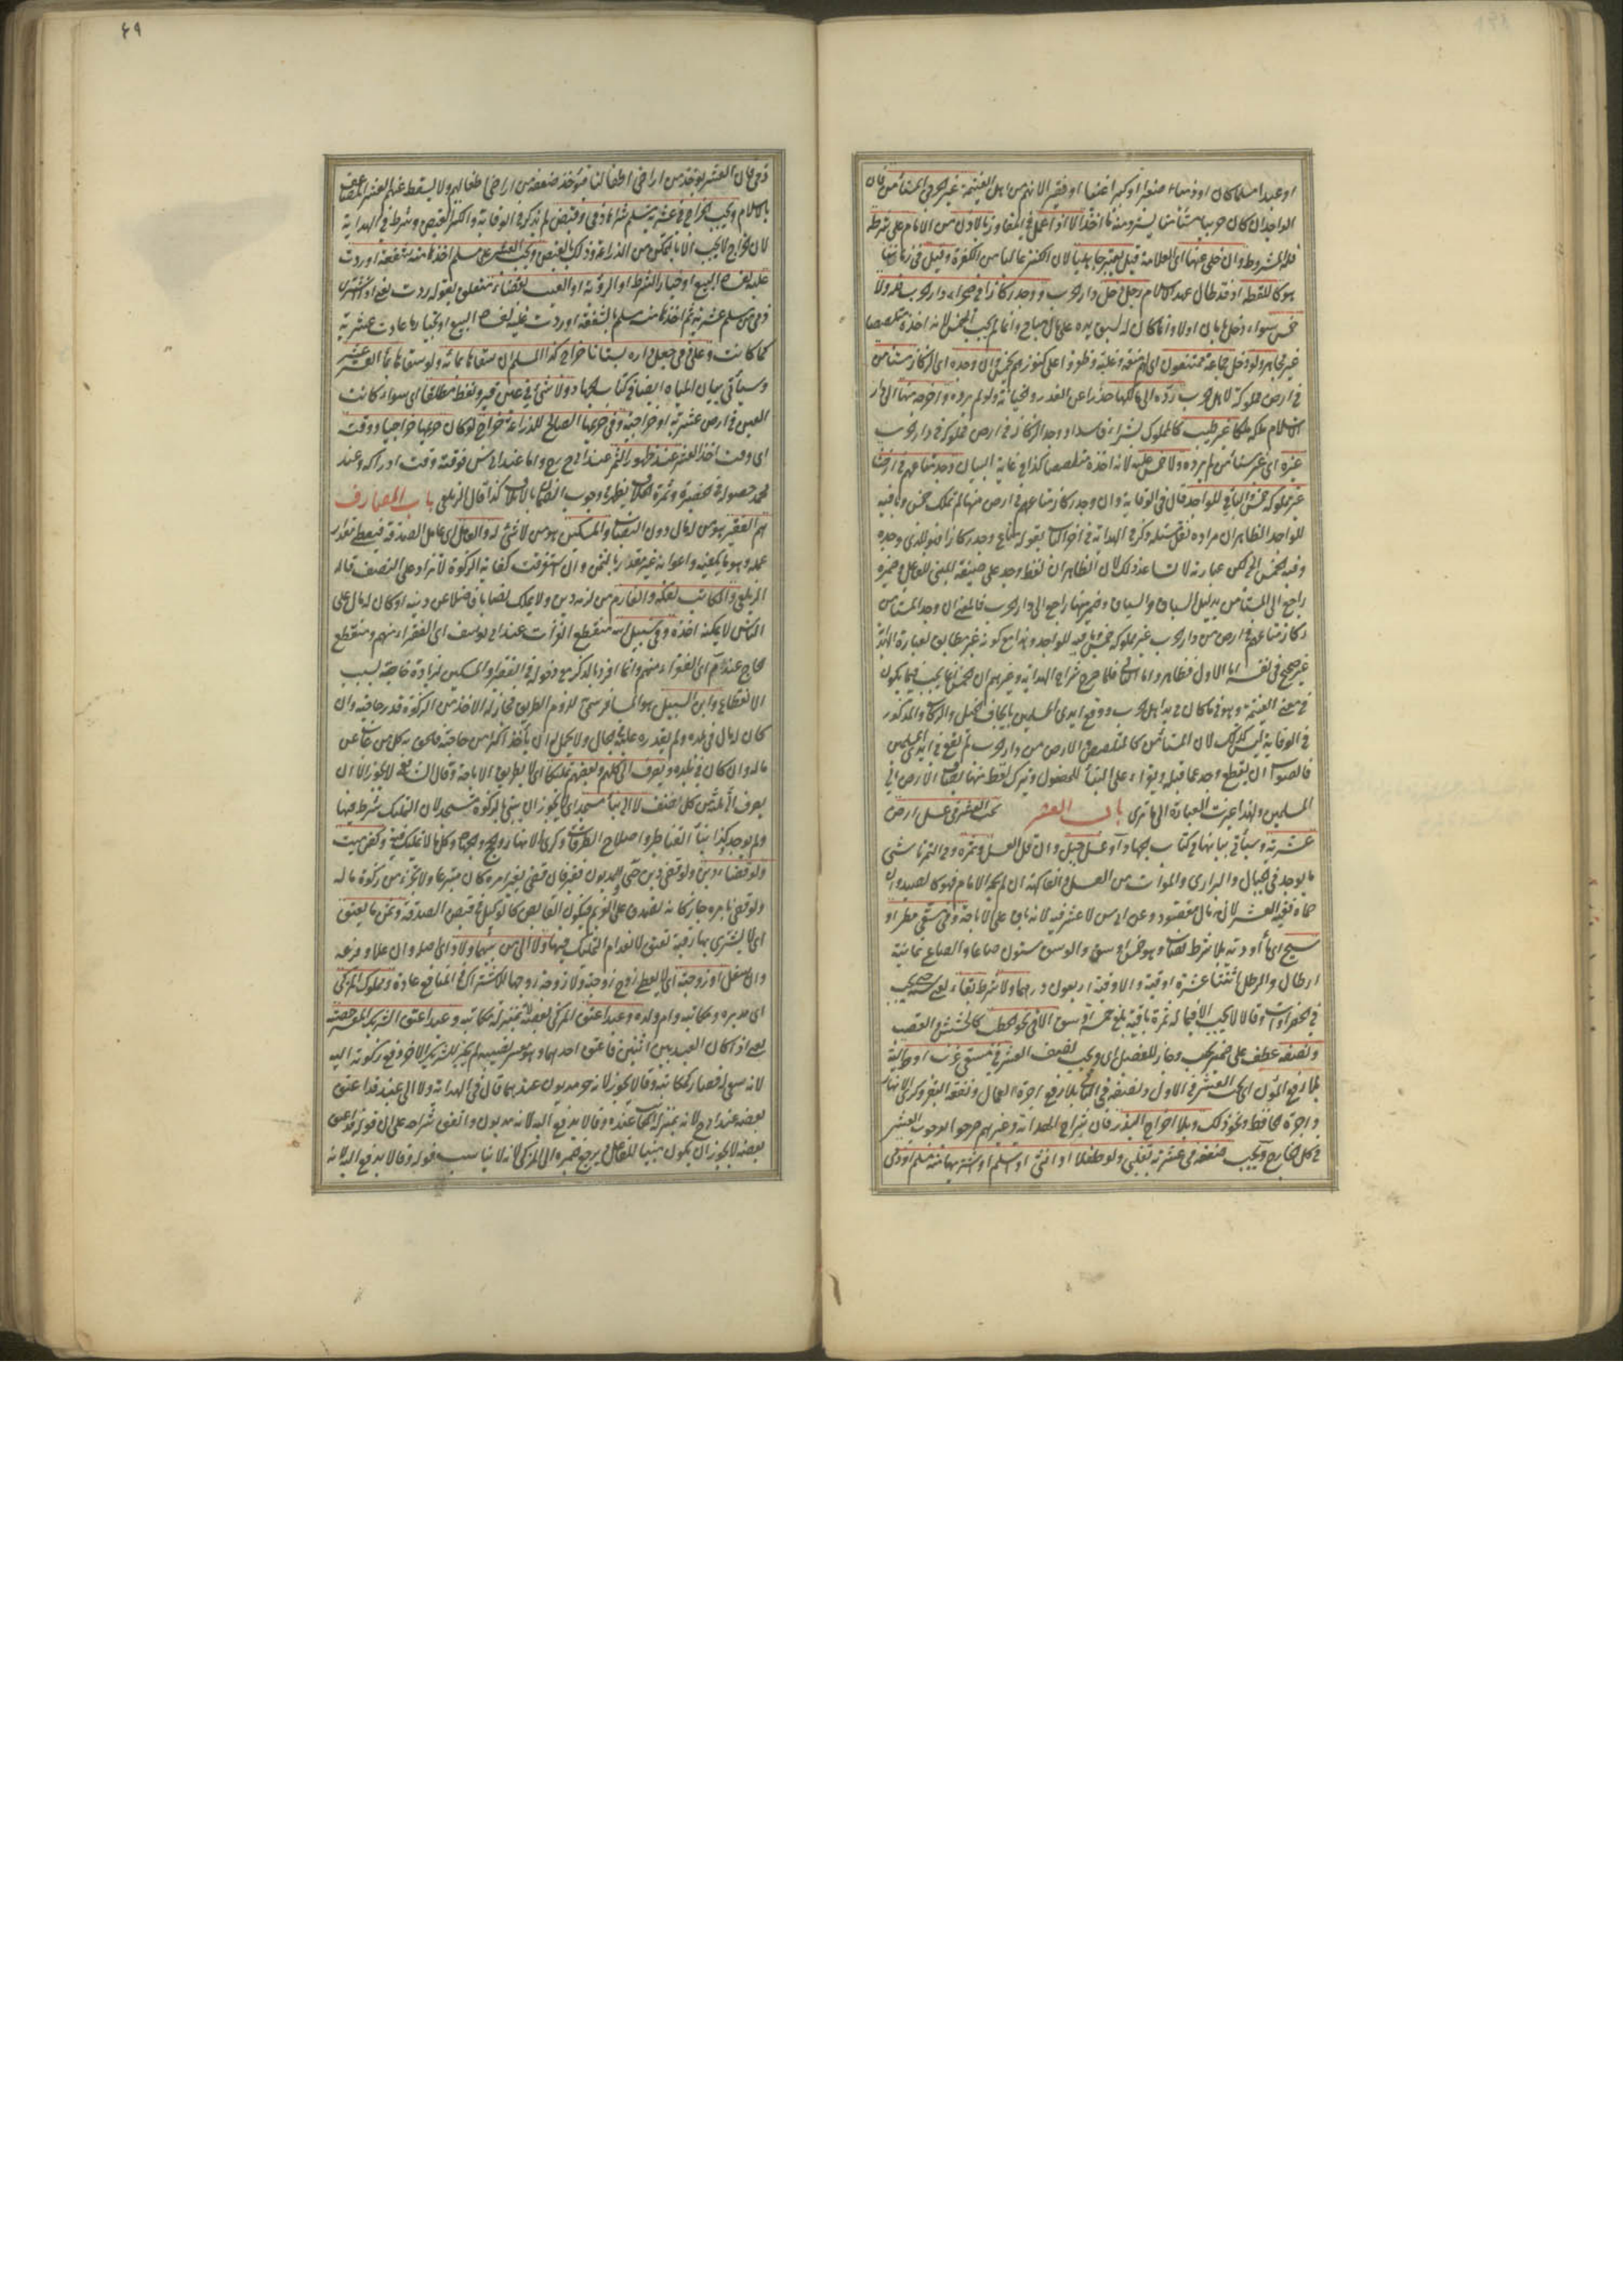 او عبدا مسلما كان او ذميا صغيرا او كبيرا غنيا او فقيرا لانهم من اهل الغنيمة غير الحربي المستأمن فان
الواجد ان كان حربيا مستأمنا يسترد منه ما اخذ الا اذا عمل في المفاوز بالاذن من الامام على شرطه
فله المشروط وان خلى عنها اى العلامة قيل يعتبر جاهليا لان الكنز غالبا من الكفرة وقيل في زماننا
هو كاللقطة اذ قد طال عهد الاسلام رجل دخل دار الحرب ووجد ركازا في صحراء دار الحرب فله ولا
خمس سواء دخل بامان اولا وانما كان له لسبق يده على مال مباح وانما لم يجب الخمس لانه اخذه متلصصا
غير مجاهر ولو دخل جماعة ممتنعون اى لهم منعة وغلبة وظفروا على كنوزهم يخمس وان وجده اى الركاز مستأمن
في ارض مملوكة لاهل الحرب رده الى مالكها حذرا عن الغدر والخيانة ولو لم يرده واخرجه منها الى دار
الاسلام ملكه ملكا غير طيب كالمملوك بشراء فاسد او وجد الركاز في ارض مملوكة في دار الحرب
غيره اى غير مستأمن لم يرده ولا خمس عليه لانه اخذه متلصصا كذا في غاية البيان وجد متاعهم في ارض
غير مملوكة خمس والباقي للواجد قال في الوقاية وان وجد ركاز متاعهم في ارض منها لم تملك خمس وباقيه
للواجد الظاهر ان مراده نقل مسئلة ذكر في الهداية في آخر الباب بقوله متاع وجد ركازا فهو للذي وجده
وفيه الخمس الخ لكن عبارته لا تساعد ذلك لان الظاهر ان لفظ وجد على صيغة المبني للفاعل وضميره
راجع الى المستأمن بدليل السباق والسياق وضمير منها راجع الى دار الحرب فالمعنى ان وجد المستأمن
ركاز متاعهم في ارض من دار الحرب غير مملوكة خمس وباقيه للواجد وهذا مع كونه غير مطابق لعبارة الهداية
غير صحيح في نفسه اما الاول فظاهر واما الثاني فلما صرح شراح الهداية وغيرهم ان الخمس انما يجب فيما يكون
في معنى الغنيمة وهو فيما كان في يد اهل الحرب ووقع في ايدي المسلمين بايجاف الخيل والركاب والمذكور
في الوقاية ليس كذلك لان المستأمن كالمتلصص والارض من دار الحرب لم تقع في ايدي المسلمين
فالصواب ان يقطع وجد عما قبله ويقرأ على البناء للمفعول ويترك لفظ منها ليصح في الارض اى
المسلمين ولهذا غيرت العبارة الى ما ترى باب العشر يجب العشر في عسل ارض
عشرية وسيأتي بيانها في كتاب الجهاد او عسل جبل وان قل العسل وثمره وفي الثمر ناشئ
ما يوجد في الجبال والبراري والموات من العسل والفاكهة ان لم يحمه الامام فهو كالصيد وان
حماه ففيه العشر لانه مال مقصود وعن ابي يوسف لا عشر فيه لانه باق على الاباحة وفي مسقي مطر او
سيح اى ماء اودية بلا شرط نصاب وهو خمسة اوسق والوسق ستون صاعا والصاع ثمانية
ارطال والرطل اثنتا عشرة اوقية والاوقية اربعون درهما ولا شرط بقاء يعني سنة حتى يجب
في الخضراوات وقالا لا يجب الا فيما له ثمرة باقية يبلغ خمسة اوسق الا في نحو الحطب كالحشيش والقصب
ونصفه عطف على ضمير يجب وجاز للفصل اى ويجب نصف العشر في مسقي غرب او دالية
بلا رفع المؤن اى يجب العشر في الاول ونصفه في الثاني بلا رفع اجرة العمال ونفقة البقر وكري الانهار
واجرة الحافظ ونحو ذلك وبلا اخراج البذر فان شراح الهداية وغيرهم صرحوا بوجوب العشر
في كل الخارج ويجب ضعفه في عشرية تغلبي ولو طفلا او انثى او اسلم او اشتراها منه مسلم او ذمي
٤٩
ذمي فان العشر يؤخذ من اراضي اطفالنا فيؤخذ ضعفه من اراضي اطفالهم ولا يسقط عنهم العشر المضاعف
بالاسلام ويجب الخراج في عشرية مسلم شراها ذمي وقبض لم يذكر في الوقاية والكنز القبض وشرط في الهداية
لان الخراج لا يجب الا بالتمكن من الزراعة وذلك بالقبض ويجب العشر على مسلم اخذها منه بشفعة او ردت
عليه لفساد البيع او خيار الشرط او الرؤية او العيب بقضاء متعلق بقوله ردت يعني اذا اشترى
ذمي من مسلم عشرية ثم اخذها منه مسلم بالشفعة او ردت عليه لفساد البيع او بخيار ما عادت عشرية
كما كانت وعلى ذمي جعل داره بستانا خراج كذا المسلم ان سقاها بمائه ولو سقاها بماء العشر عشر
وسيأتي بيان المياه ايضا في كتاب الجهاد ولا شئ في عين قير ونفط مطلقا اى سواء كانت
العين في ارض عشرية او خراجية وفي حريمها الصالح للزراعة خراج لو كان حريمها خراجيا ووقت
اى وقت اخذ العشر عند ظهور الثمر عند ابي ح رح واما عند ابي يوسف فوقته وقت ادراكه وعند
محمد حصوله في الحظيرة وثمرة الخلاف يظهر في وجوب الضمان بالاتلاف كذا قال الزيلعي باب المصارف
هم الفقير هو من له مال دون النصاب والمسكين هو من لا شئ له والعامل اى عامل الصدقة فيعطى بقدر
عمله وهو ما يكفيه واعوانه غير مقدر بالثمن وان استغرقت كفايته الزكوة لا تزاد على النصف قاله
الزيلعي والمكاتب لفكه والغارم من لزمه دين ولا يملك نصابا فاضلا عن دينه او كان له مال على
الناس لا يمكنه اخذه وفي سبيل الله منقطع الغزات عند ابي يوسف اى الفقراء منهم ومنقطع
الحاج عند م اى الفقراء منهم وانما افرد بالذكر مع دخوله في الفقير والمسكين لزيادة حاجته بسبب
الانقطاع وابن السبيل هو المسافر سمي للزومه الطريق فجاز له الاخذ من الزكوة قدر حاجته وان
كان له مال في بلده ولم يقدر عليه في الحال ولا يحل له ان يأخذ اكثر من حاجته والحق به كل من غاب عن
ماله وان كان في بلده ويصرف الى كلهم او بعضهم تمليكا اى لا بطريق الاباحة وقال الشافعي لا يجوز الا ان
يصرف الى ثلثة من كل صنف لا الى بناء مسجد اى لا يجوز ان يبنى بالزكوة مسجد لان التمليك شرط فيها
ولم يوجد وكذا بناء القناطر واصلاح الطرقات وكري الانهار والحج والجهاد وكل ما لا تمليك فيه وكفن ميت
وقضاء دينه ولو قضى دين حي المديون فقير فان قضى بغير امره كان متبرعا ولا يجزئ من زكوة ماله
ولو قضى بامره جاز كانه تصدق على الغريم فيكون القابض كالوكيل في قبض الصدقة وثمن ما يعتق
اى لا يشترى بها رقبة تعتق لانعدام التمليك فيها ولا الى من بينهما ولاد اى اصله وان علا وفرعه
وان سفل او زوجية اى لا يعطي زوج زوجته ولا زوجة زوجها للاشتراك في المنافع عادة ومملوك المزكي
اى مدبره ومكاتبه وام ولده وعبد اعتق المزكي بعضه لانه بمنزلة مكاتبه وعبد اعتق الشريك المعسر حصته
يعني اذا كان العبد بين اثنين فاعتق احدهما وهو معسر نصيبه لم يجز للشريك الآخر دفع زكوته اليه
لانه يسعى له فصار كمكاتبه وقالا يجوز لانه حر مديون عندهما قال في الهداية ولا الى عبد قد اعتق
بعضه عند ابي ح لانه بمنزلة المكاتب عنده وقالا يدفع اليه لانه حر مديون واتفق شراحه على ان قوله قد اعتق
بعضه لا يجوز ان يكون مبنيا للفاعل ويرجع ضميره الى المزكي لانه لا يناسب قوله وقالا يدفع اليه لانه